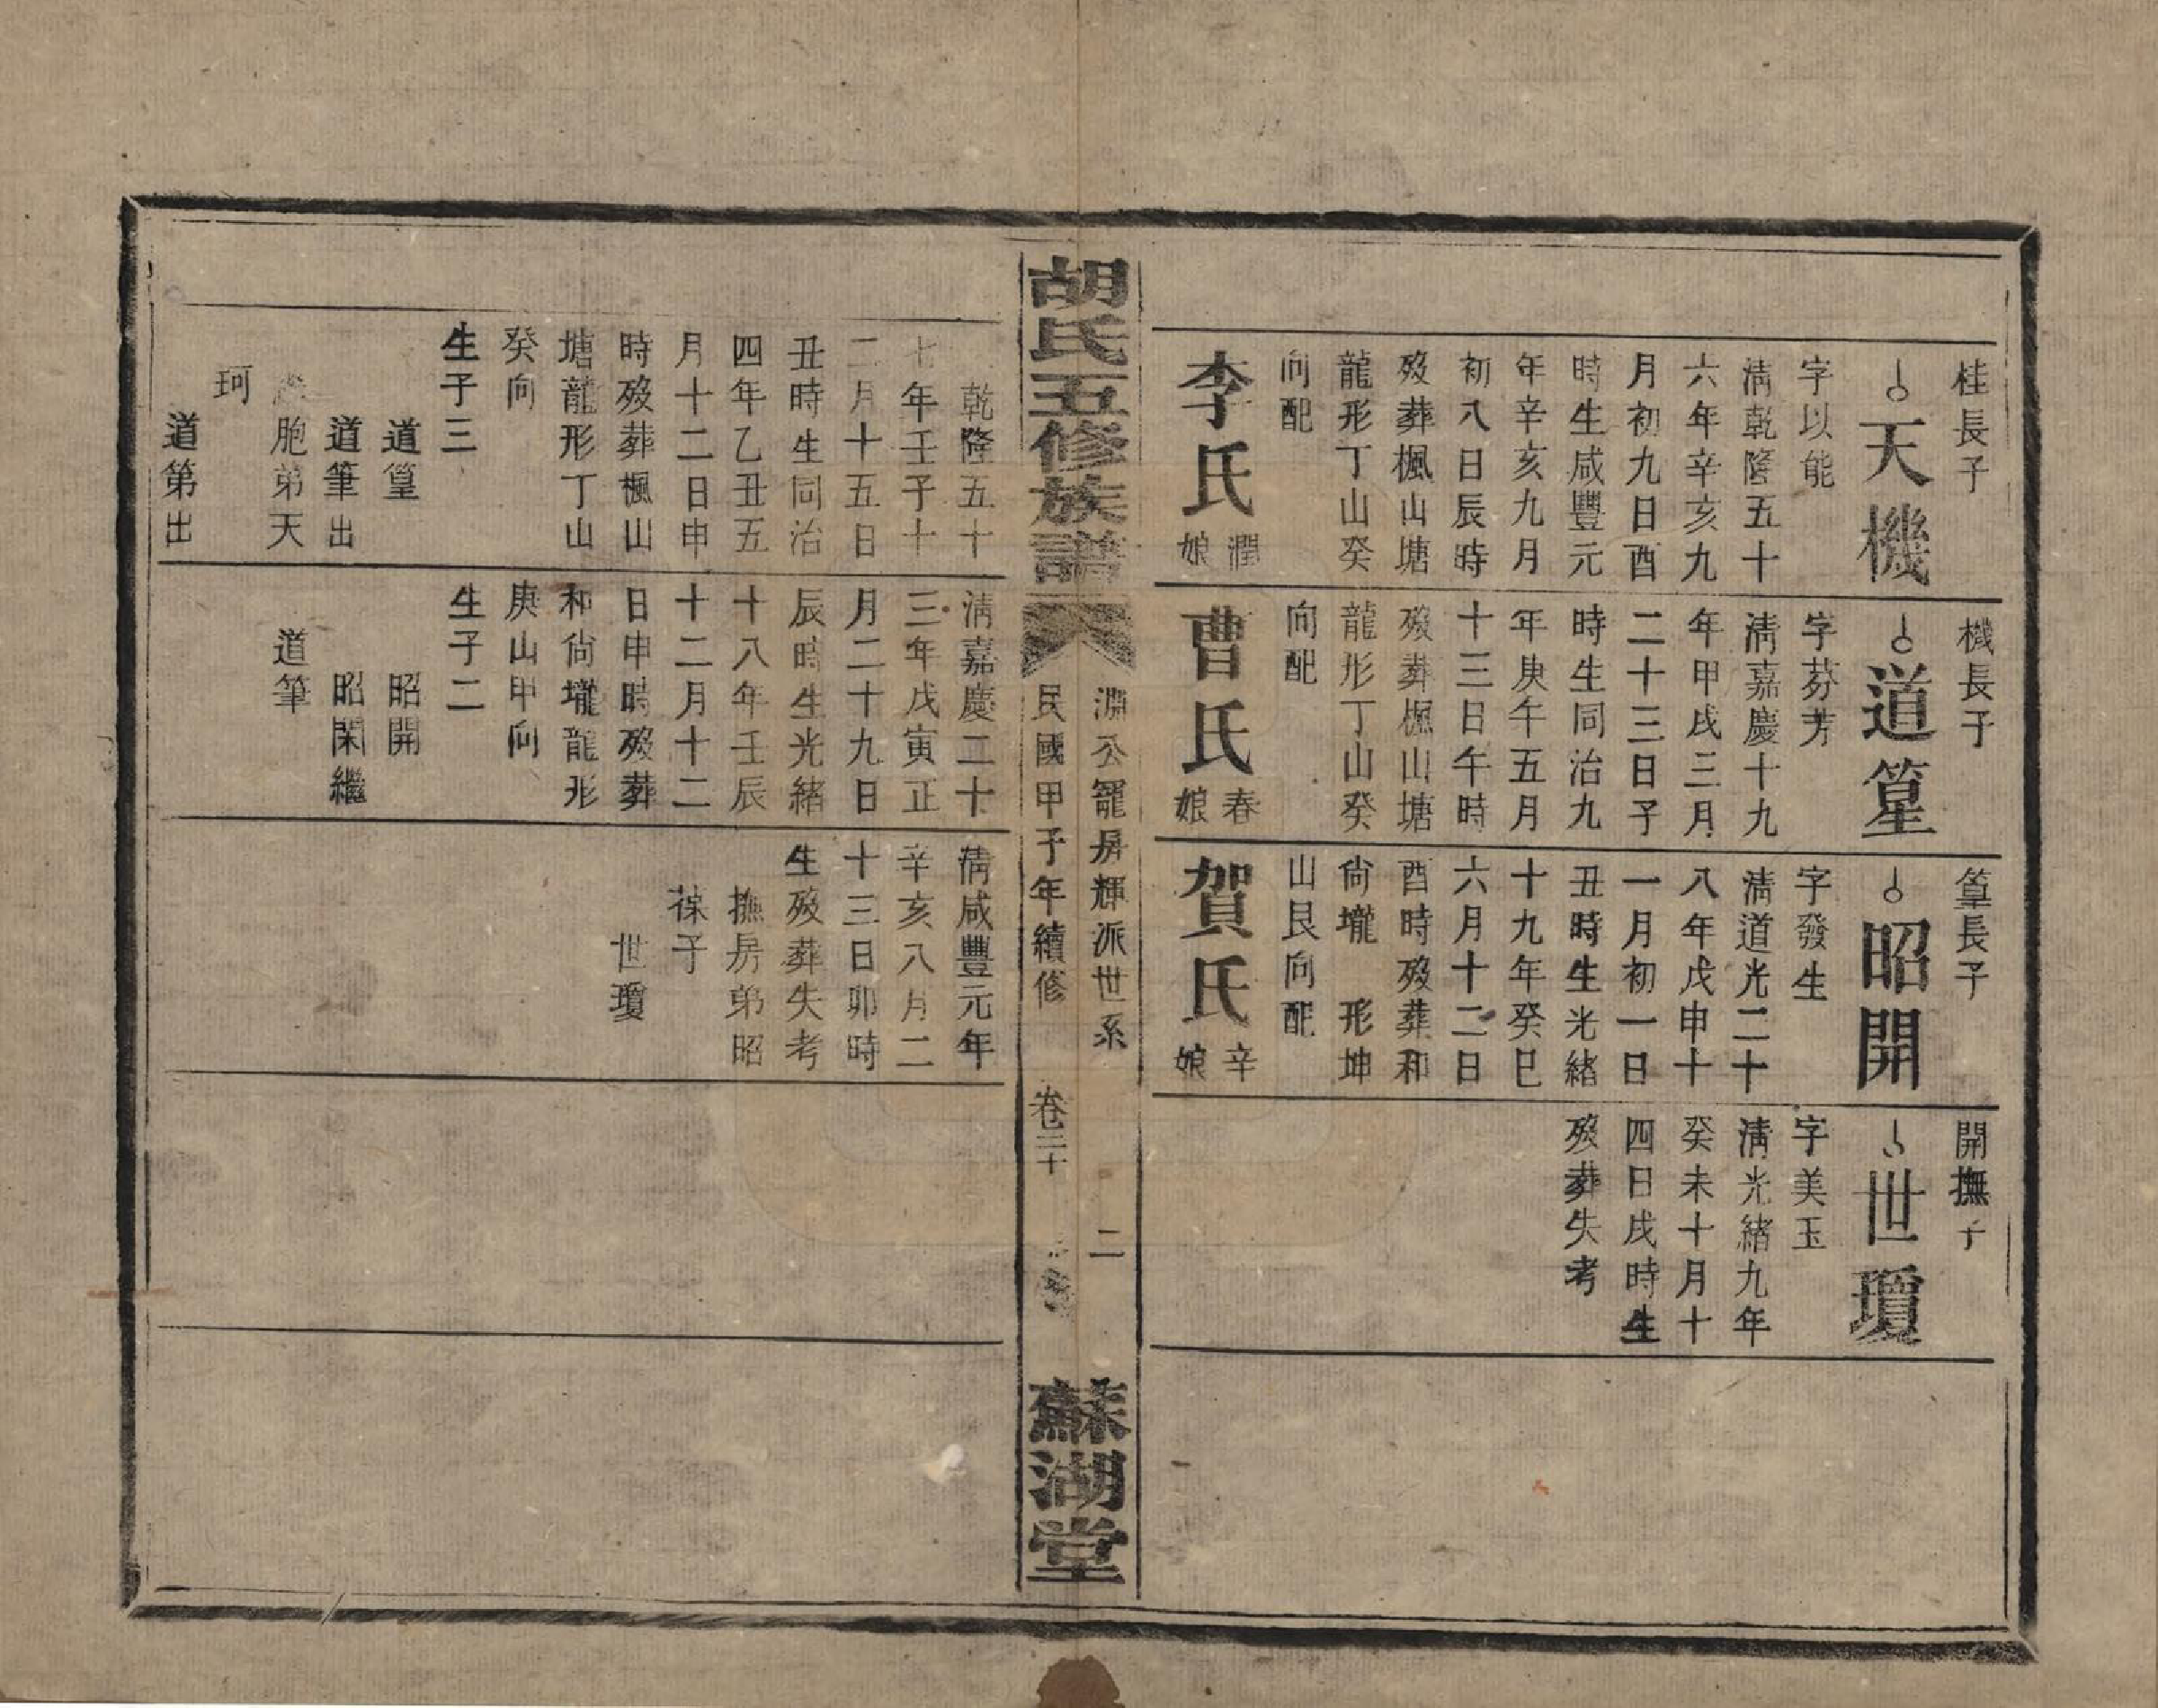 桂長子
天機
字以能
清乾隆五十
六年辛亥九
月初九日酉
時生咸豐元
年辛亥九月
初八日辰時
歿葬楓山塘
龍形丁山癸
向配
李氏潤娘
機長子
道篁
字芬芳
清嘉慶十九
年甲戌三月
二十三日子
時生同治九
年庚午五月
十三日午時
歿葬楓山塘
龍形丁山癸
向配
曹氏春娘
篁長子
昭開
字發生
清道光二十
八年戊申十
一月初一日
丑時生光緒
十九年癸巳
六月十二日
酉時歿葬和
尙壠 形坤
山艮向配
賀氏辛娘
開撫子
世瓊
字美玉
清光緒九年
癸未十月十
四日戌時生
歿葬失考
淵公寵房輝派世系
二
胡氏五修族譜
民國甲子年續修
卷二十
蘇湖堂
乾隆五十
七年壬子十
二月十五日
丑時生同治
四年乙丑五
月十二日申
時歿葬楓山
塘龍形丁山
癸向
生子三
道篁
道筆出
胞弟天
珂
道第出
清嘉慶二十
三年戊寅正
月二十九日
辰時生光緒
十八年壬辰
十二月十二
日申時歿葬
和尙壠龍形
庚山甲向
生子二
昭開
昭閑繼
道筆
清咸豐元年
辛亥八月二
十三日卯時
生歿葬失考
撫房弟昭
葆子
世瓊